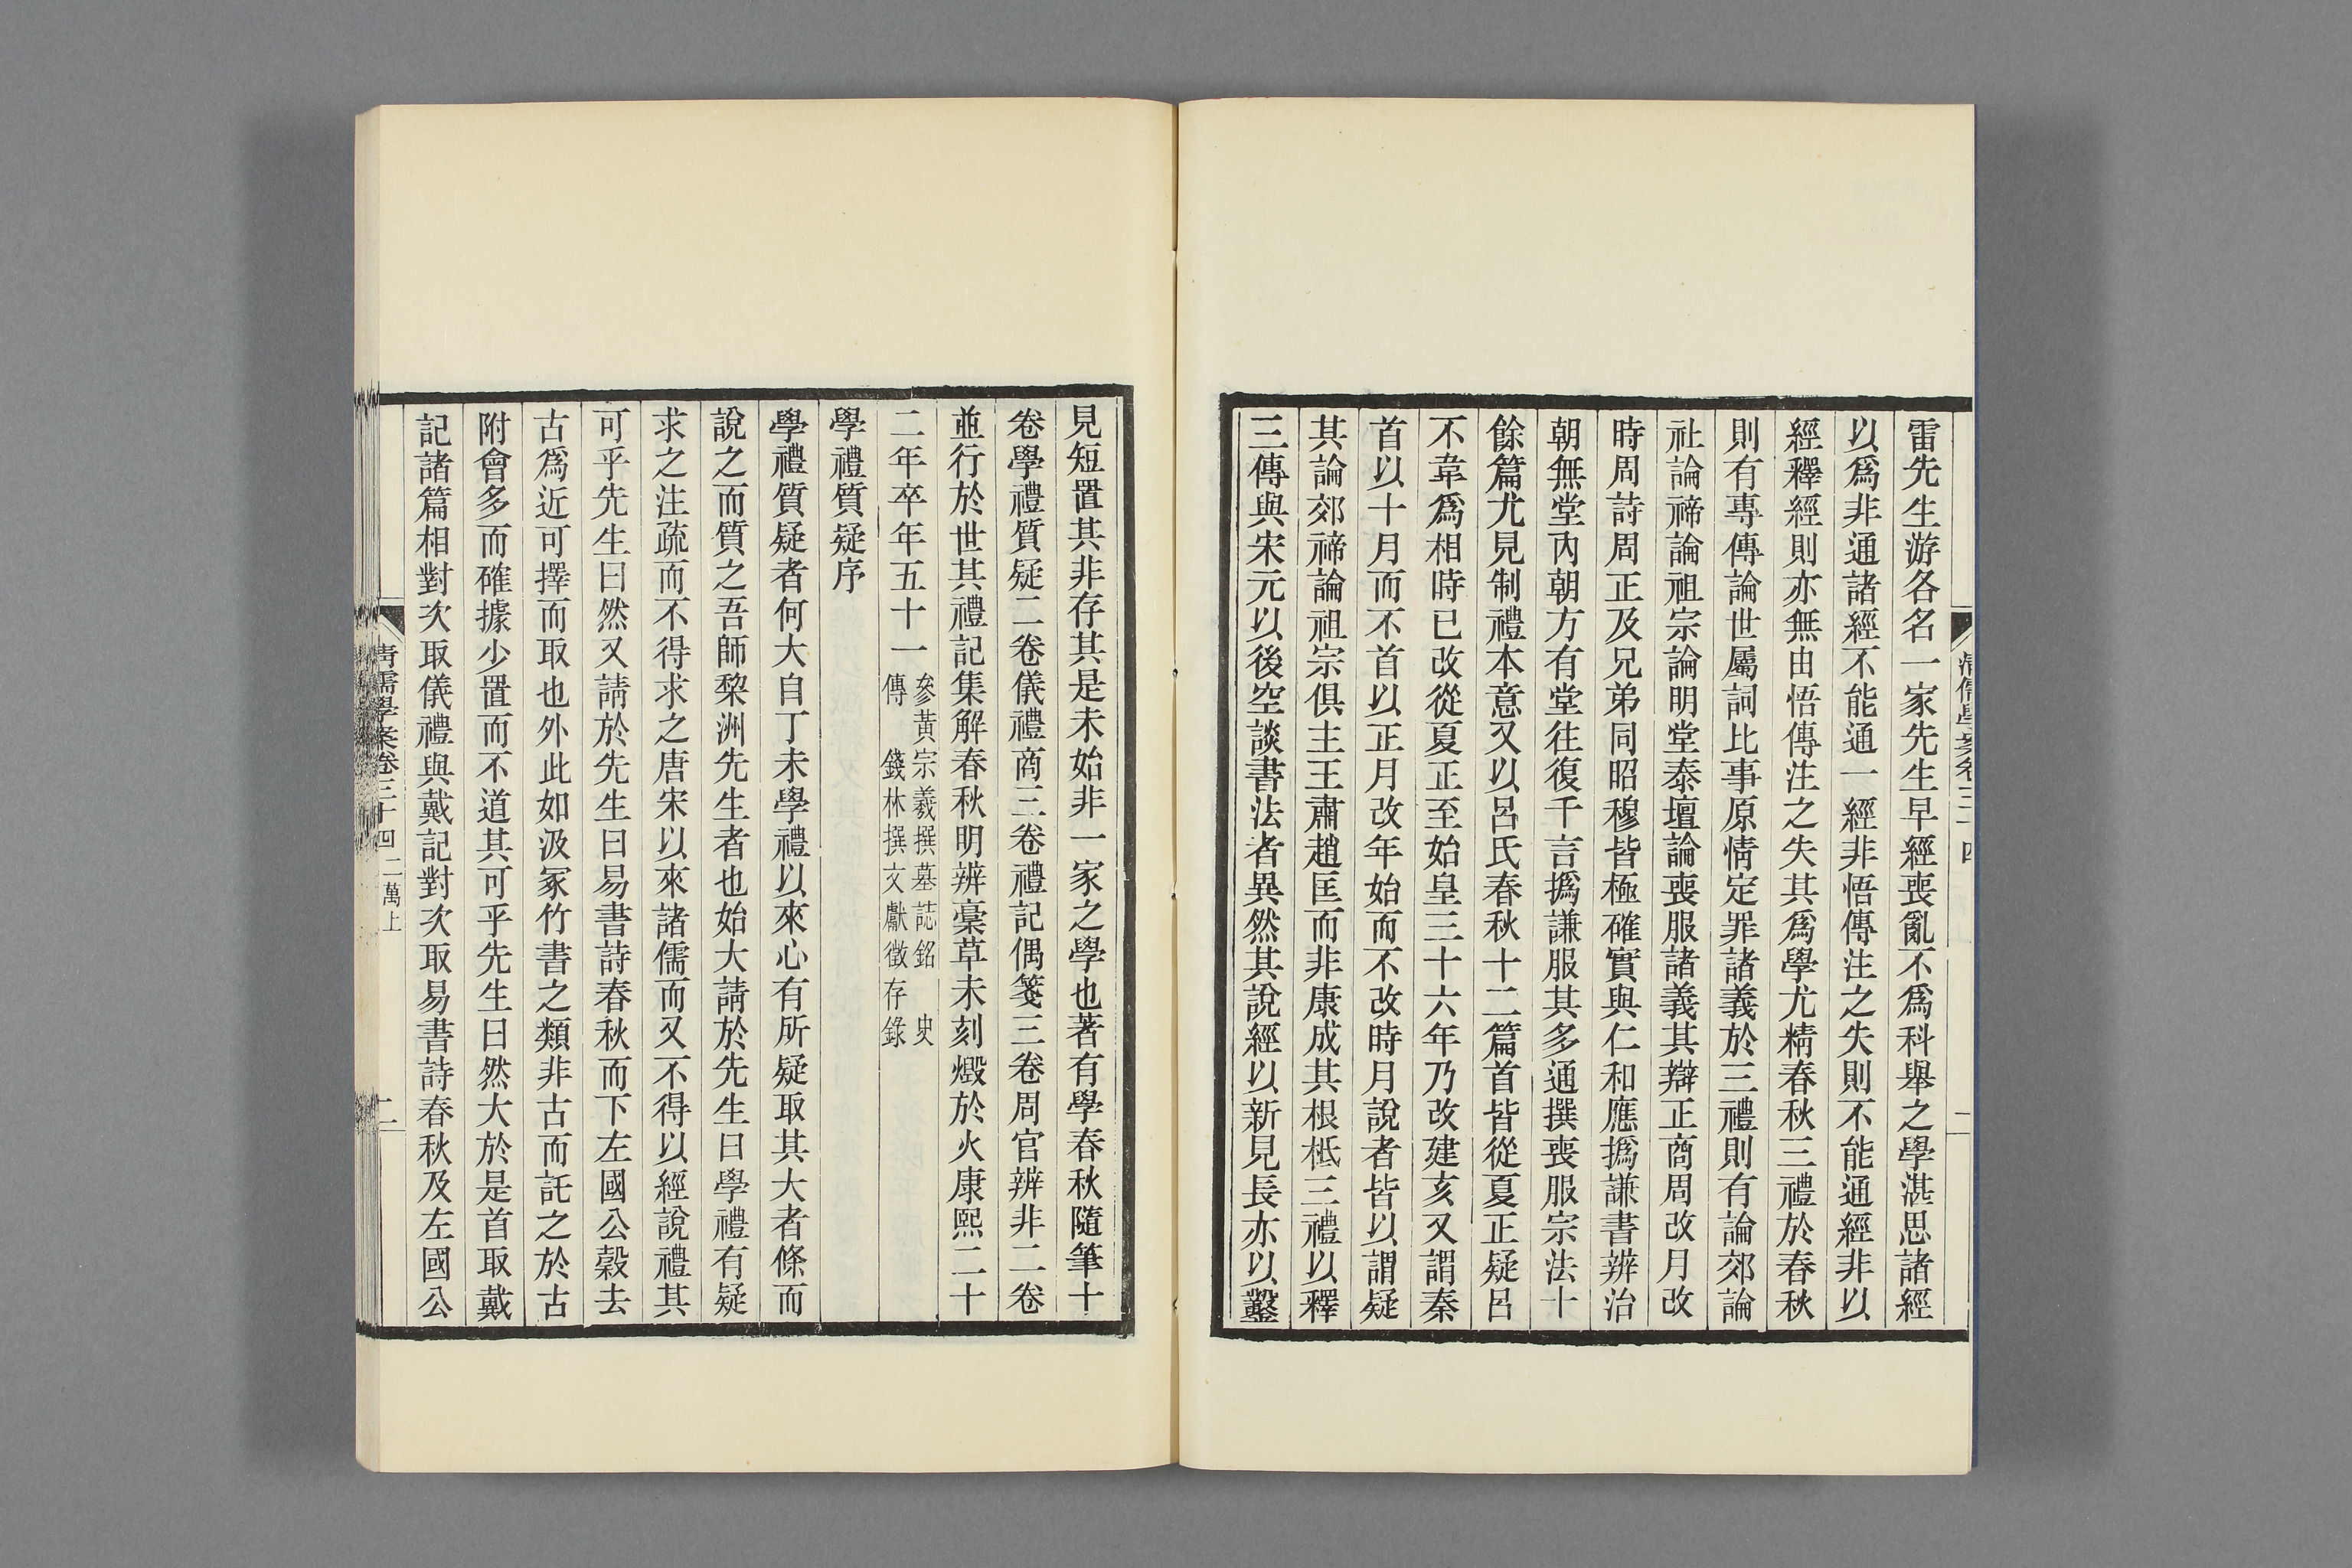 雷先生游各名一家先生早經喪亂不爲科舉之學湛思諸經
以爲非通諸經不能通一經非悟傳注之失則不能通經非以
經釋經則亦無由悟傳注之失其爲學尤精春秋三禮於春秋
則有專傳論世屬詞比事原情定罪諸義於三禮則有論郊論
社論禘論祖宗論明堂泰壇論喪服諸義其辯正商周改月改
時周詩周正及兄弟同昭穆皆極確實與仁和應撝謙書辨治
朝無堂內朝方有堂往復千言撝謙服其多通撰喪服宗法十
餘篇尤見制禮本意又以呂氏春秋十二篇首皆從夏正疑呂
不韋爲相時已改從夏正至始皇三十六年乃改建亥又謂秦
首以十月而不首以正月改年始而不改時月說者皆以謂疑
其論郊禘論祖宗俱主王肅趙匡而非康成其根柢三禮以釋
三傳與宋元以後空談書法者異然其說經以新見長亦以鑿
見短置其非存其是未始非一家之學也著有學春秋隨筆十
卷學禮質疑二卷儀禮商三卷禮記偶箋三卷周官辨非二卷
並行於世其禮記集解春秋明辨稾草未刻燬於火康熙二十
二年卒年五十一
參黃宗羲撰墓誌銘 史
傳 錢林撰文獻徵存錄
學禮質疑序
學禮質疑者何大自丁未學禮以來心有所疑取其大者條而
說之而質之吾師黎洲先生者也始大請於先生曰學禮有疑
求之注疏而不得求之唐宋以來諸儒而又不得以經說禮其
可乎先生曰然又請於先生曰易書詩春秋而下左國公穀去
古爲近可擇而取也外此如汲冢竹書之類非古而託之於古
附會多而確據少置而不道其可乎先生曰然大於是首取戴
記諸篇相對次取儀禮與戴記對次取易書詩春秋及左國公
清儒學案卷三十四 二萬上
二